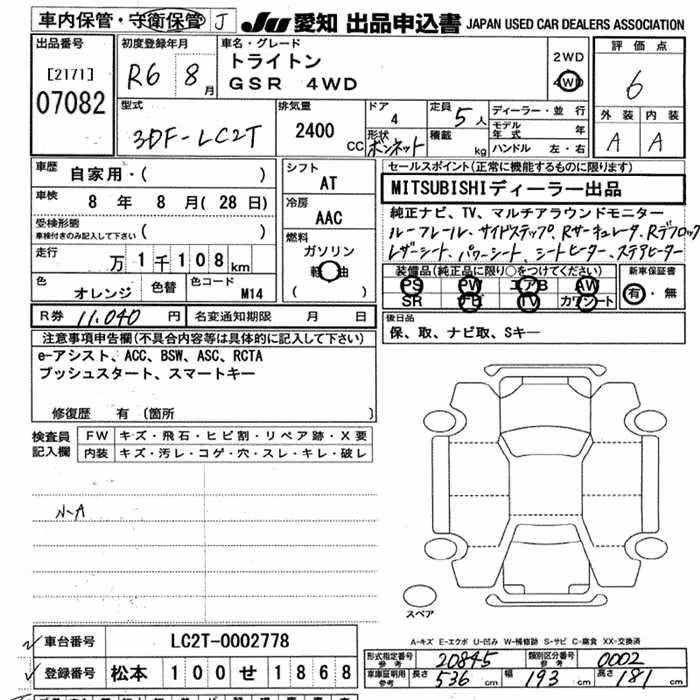 車内保管・守衛保管 J
JU 愛知 出品申込書 JAPAN USED CAR DEALERS ASSOCIATION
出品番号
[2171]
07082
初度登録年月
R6 8月
車名・グレード
トライトン
GSR 4WD
2WD
4WD
評価点
6
外装 内装
A A
型式
3DF-LC2T
排気量
2400 CC
ドア
4
定員
5人
形状
ボンネット
積載
kg
ディーラー・並行
モデル年式 年
ハンドル 左・右
車歴
自家用・( )
車検
8年 8月(28日)
受検形態
車検付きのみ記入して下さい ( )
走行
万1千108km
色
オレンジ
色替
色コード
M14
シフト
AT
冷房
AAC
燃料
ガソリン
軽油
( )
セールスポイント(正常に機能するものに限ります)
MITSUBISHIディーラー出品
純正ナビ、TV、マルチアラウンドモニター
ルーフレール、サイドステップ、Rサーキュレータ、Rデフロック
レザーシート、パワーシート、シートヒーター、ステアヒーター
装備品(純正品に限り○をつけてください)
PS PW エアB AW
SR ナビ TV カワシート
新車保証書
有・無
R券 11,040円
名変通知期限 月 日
後日品
保、取、ナビ取、Sキー
注意事項申告欄(不具合内容等は具体的に記入して下さい)
e-アシスト、ACC、BSW、ASC、RCTA
プッシュスタート、スマートキー
修復歴 有(箇所 )
検査員記入欄
FW キズ・飛石・ヒビ割・リペア跡・X要
内装 キズ・汚レ・コゲ・穴・スレ・キレ・破レ
スペア
A-キズ E-エクボ U-凹み W-補修跡 S-サビ C-腐食 XX-交換済
車台番号 LC2T-0002778
登録番号 松本 100 せ 1868
形式指定番号 参考 20845
類別区分番号 参考 0002
車庫証明用 参考 長さ 536cm 幅 193cm 高さ 181cm